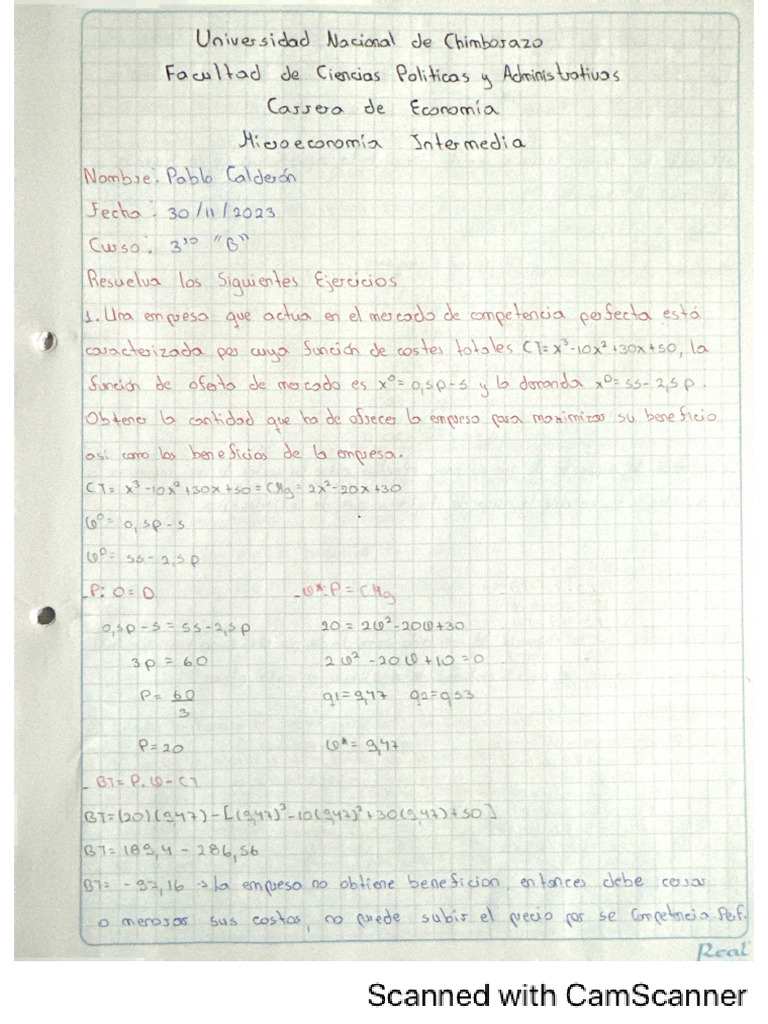 Universidad Nacional de Chimborazo
Facultad de Ciencias Politicas y Administrativas
Carrera de Economía
Microeconomía Intermedia
Nombre: Pablo Calderón
Fecha: 30/11/2023
Curso: 3ro "B"
Resuelva los Siguientes Ejercicios
1. Una empresa que actua en el mercado de competencia perfecta está
caracterizada por cuya función de costes totales CT= x³-10x²+30x+50, la
función de oferta de mercado es x⁰= 0,5p-5 y la demanda x⁰= 55-2,5p.
Obtener la cantidad que ha de ofrecer la empresa para maximizar su beneficio
así como los beneficios de la empresa.
CT= x³-10x²+30x+50 = CMg = 2x²-20x+30
Q⁰= 0,5p-5
Q⁰= 55-2,5p
_P: O=D _Q*: P=CMg
0,5p-5 = 55-2,5p 20 = 2Q²-20Q+30
3p = 60 2Q²-20Q+10=0
P= 60/3 q1=9,47 q2=0,53
P=20 Q*= 9,47
_BT= P.Q-CT
BT=(20)(9,47)-[(9,47)³-10(9,47)²+30(9,47)+50]
BT= 189,4 - 286,56
BT= -97,16 → la empresa no obtiene beneficion, entonces debe cerrar
o menorar sus costos, no puede subir el precio por se Competencia Perf.
Real
Scanned with CamScanner